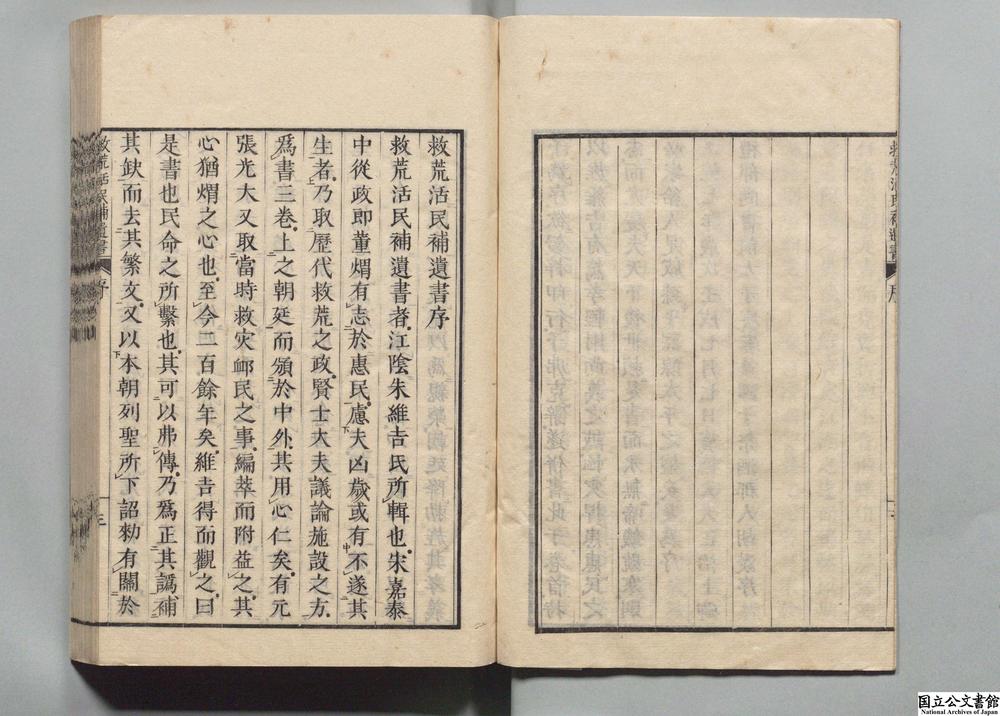 救荒活民補遺書
序
救荒活民補遺書序
救荒活民補遺書者江陰朱維吉氏所輯也宋嘉泰
中從政即董煟有志於惠民慮夫凶歲或有不遂其
生者乃取歷代救荒之政賢士大夫議論施設之方
爲書三卷上之朝廷而頒於中外其用心仁矣有元
張光大又取當時救灾䘏民之事編萃而附益之其
心猶煟之心也至今二百餘年矣維吉得而觀之曰
是書也民命之所繫也其可以弗傳乃爲正其譌補
其缺而去其繁文又以本朝列聖所下詔勑有關於
救荒活民補遺書
序
三
国立公文書館
National Archives of Japan